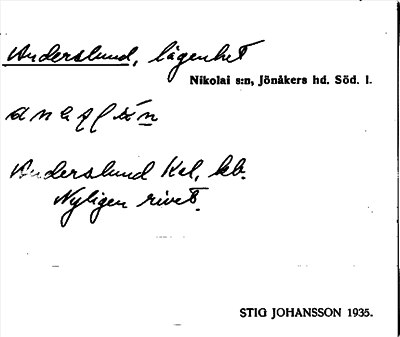 Anderslund, lägenhet
Nikolai s:n, Jönåkers hd. Söd. l.
Anderslund Kal, kb.
Nyligen rivet.
STIG JOHANSSON 1935.